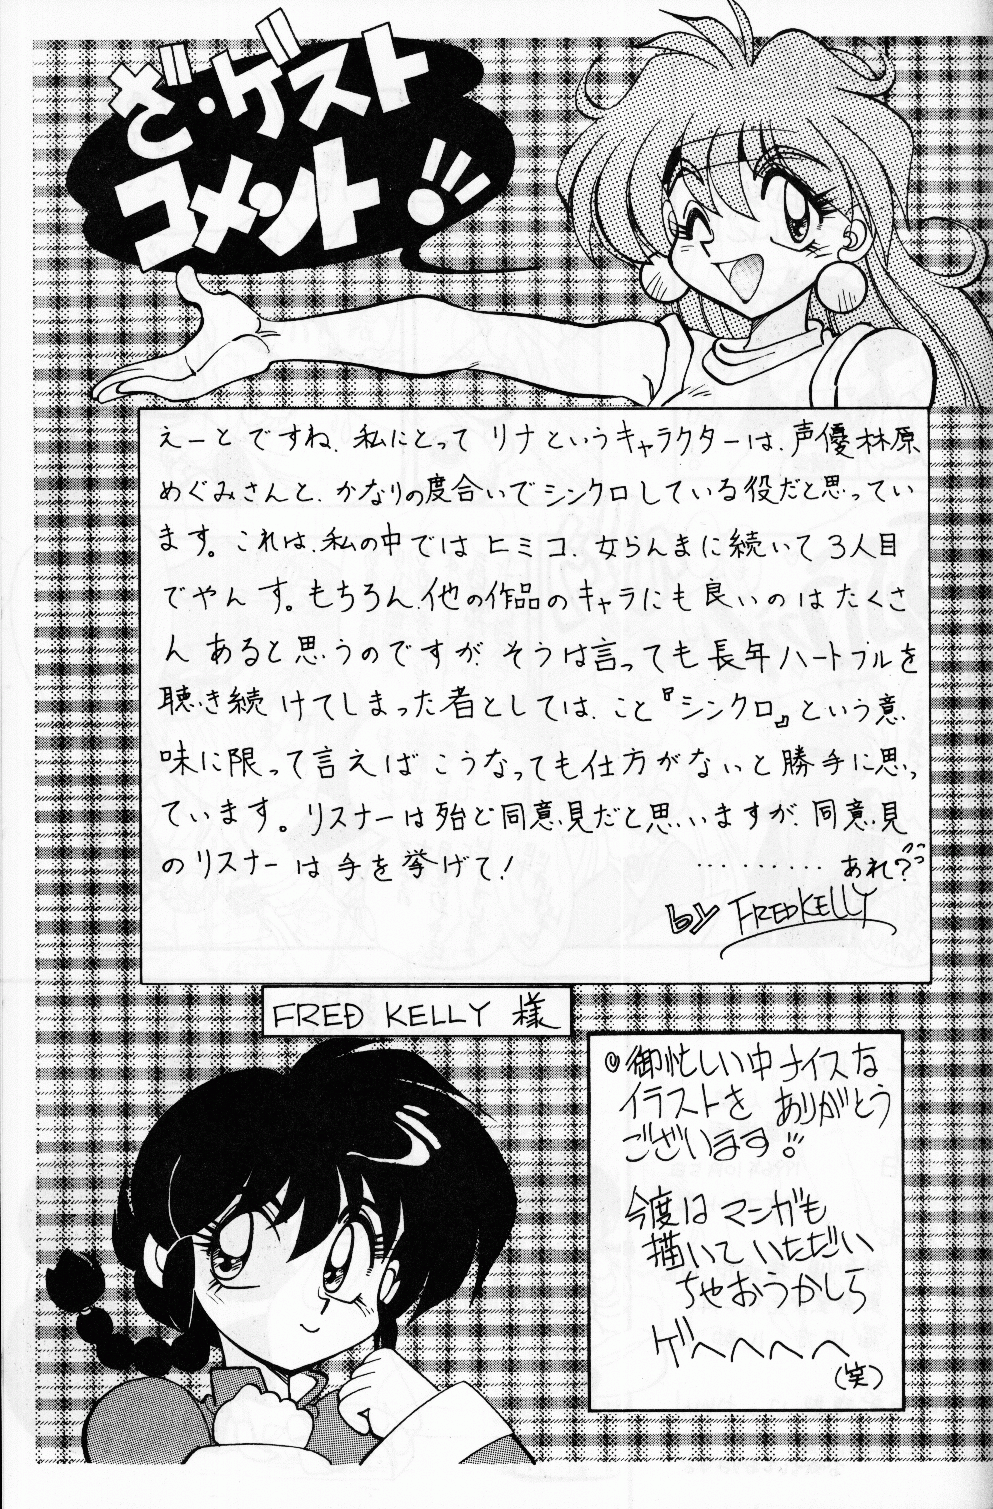 ざ・ゲスト
コメント!!!
えーとですね、私にとって リナというキャラクターは、声優林原
めぐみさんと、かなりの度合いでシンクロしている役だと思ってい
ます。これは、私の中では ヒミコ、女らんまに続いて 3人目
でやんす。もちろん、他の作品のキャラにも良いのはたくさ
ん あると思うのですが、そうは言っても長年ハートフルを
聴き続けてしまった者としては、こと『シンクロ』という意
味に限って言えばこうなっても仕方がないと勝手に思っ
ています。リスナーは殆ど同意見だと思いますが、同意見
のリスナーは手を挙げて!
………… あれ?
by FRED KELLY
FRED KELLY 様
御忙しい中ナイスな
イラストを ありがとう
ございます!!
今度は マンガも
描いていただい
ちゃおうかしら
ゲへへへへ
(笑)